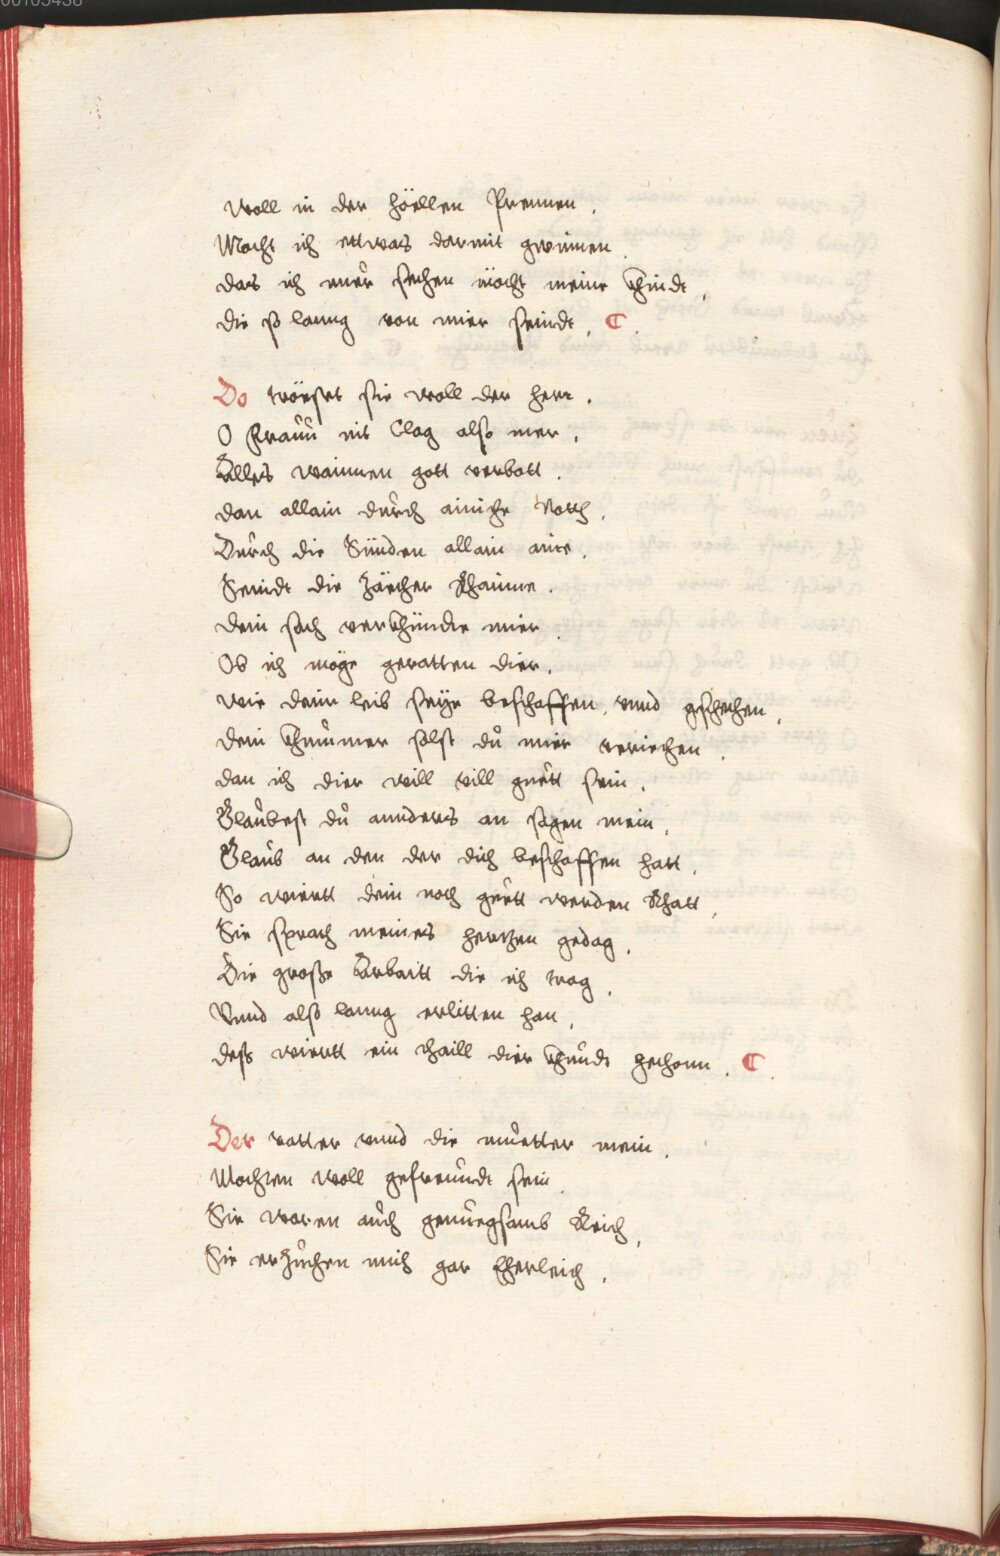 00105438
Woll in der höellen Prennen.
Mocht ich ettwas darmit gwinnen
das ich nuer sechen möcht meine Khindt,
die so lanng von mier seindt. C.
Do trösset sie woll der herr.
O Frauu nit Clag also mer.
Alles wainnen gott verbott.
dan allain dúrch ainiche Noth.
Durch die Sünden allain aine.
Seindt die Zächer Rhaine.
dein sach verkhünde mier
Ob ich möge geratten dier.
wie dein leib seye beschaffen, vnnd gschechen,
dein Khummer solst dú mier veriechen
dan ich dier will vill guett sein.
Glaubest dú annders an sagen mein,
Glaub an den der dich beschaffen hatt.
So wiertt dein noch guett werden Rhatt
Sie sprach meines hertzen gedag,
Die große Arbaitt die ich trag,
Vnnd also lanng erlitten han,
dess wiertt ein thaill dier Khundt gethonn. C.
Der vatter vnnd die muetter mein.
Mochten woll gefreundt sein.
Sie waren aúch genuegsamb Reich,
Sie erzúchen mich gar Eherleich.